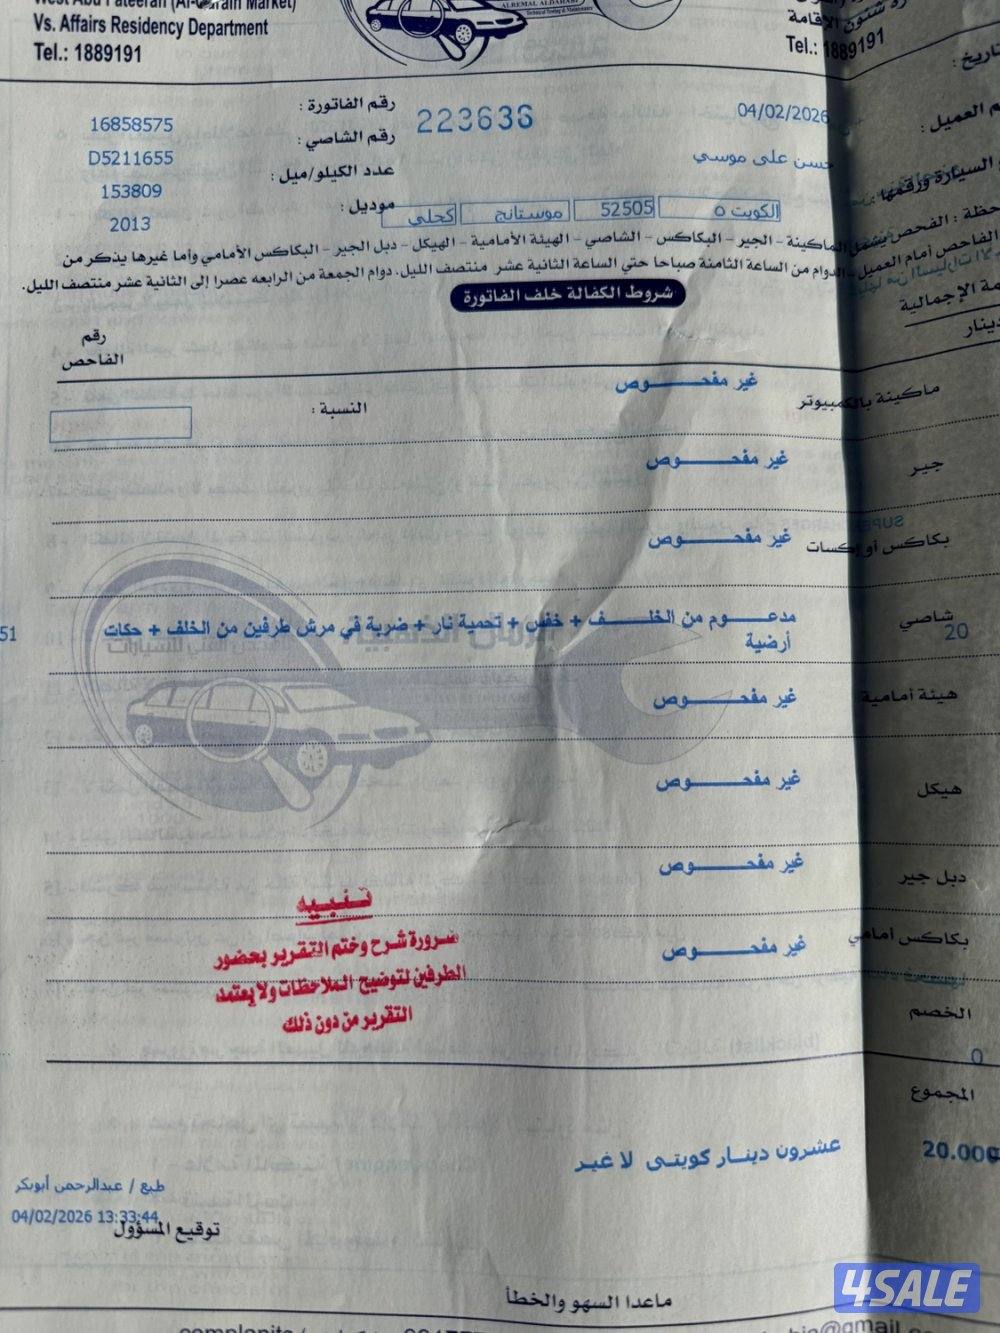 West Abu Fateerah (Al-Qurain Market)
Vs. Affairs Residency Department
Tel.: 1889191
ALREMAL ALDAHABI
Technical Testing & Maintenance
شئون الإقامة
Tel.: 1889191
رقم الفاتورة : 16858575
223636
04/02/2026
رقم الشاصي : D5211655
العميل :
حسن على موسي
عدد الكيلو/ميل : 153809
السيارة ورقمها :
الكويت ٥ 52505 موستانج كحلي
موديل : 2013
حظة : الفحص يشمل الماكينة - الجير - البكاكس - الشاصي - الهيئة الأمامية - الهيكل - دبل الجير - البكاكس الأمامي وأما غيرها يذكر من
الفاحص أمام العميل - الدوام من الساعة الثامنة صباحا حتي الساعة الثانية عشر منتصف الليل. دوام الجمعة من الرابعه عصرا إلى الثانية عشر منتصف الليل.
شروط الكفالة خلف الفاتورة
الإجمالية
دينار
رقم
الفاحص
ماكينة بالكمبيوتر
غير مفحـــــوص
النسبة :
جير
غير مفحـــــوص
SUPERCHARGER
بكاكس أو إكسات
غير مفحـــــوص
شاصي
20
مدعـــــوم من الخلـــــف + خفس + تحمية نار + ضربة في مرش طرفين من الخلف + حكات
51
أرضية
هيئة أمامية
غير مفحـــــوص
هيكل
غير مفحـــــوص
دبل جير
غير مفحـــــوص
بكاكس أمامي
غير مفحـــــوص
تنبيه
ضرورة شرح وختم التقرير بحضور
الطرفين لتوضيح الملاحظات ولا يعتمد
التقرير من دون ذلك
الخصم
0
المجموع
20.000
عشرون دينـار كويتى لا غير
طبع / عبدالرحمن أبوبكر
04/02/2026 13:33:44
توقيع المسؤول
ماعدا السهو والخطأ
4SALE